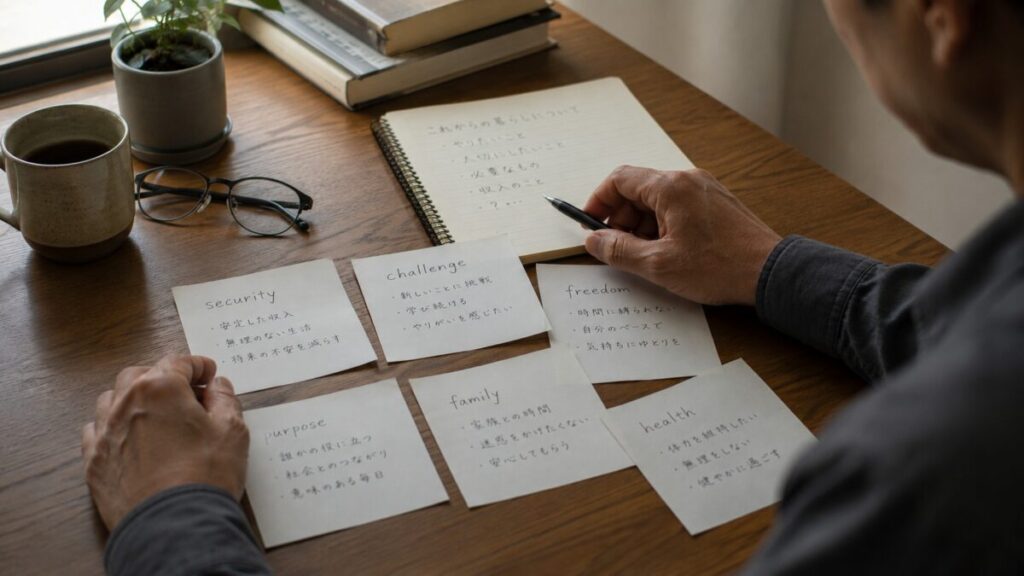 これからの暮らしについて
・やりたいこと
・大切にしたいこと
・必要なもの
・収入のこと
security
・安定した収入
・無理のない生活
・将来の不安を減らす
challenge
・新しいことに挑戦
・学び続ける
・やりがいを感じたい
freedom
・時間に縛られない
・自分のペースで
・気持ちにゆとりを
purpose
・誰かの役に立つ
・社会とのつながり
・意味のある毎日
family
・家族との時間
・迷惑をかけたくない
・安心してもらう
health
・体力を維持したい
・無理をしない
・健やかに過ごす